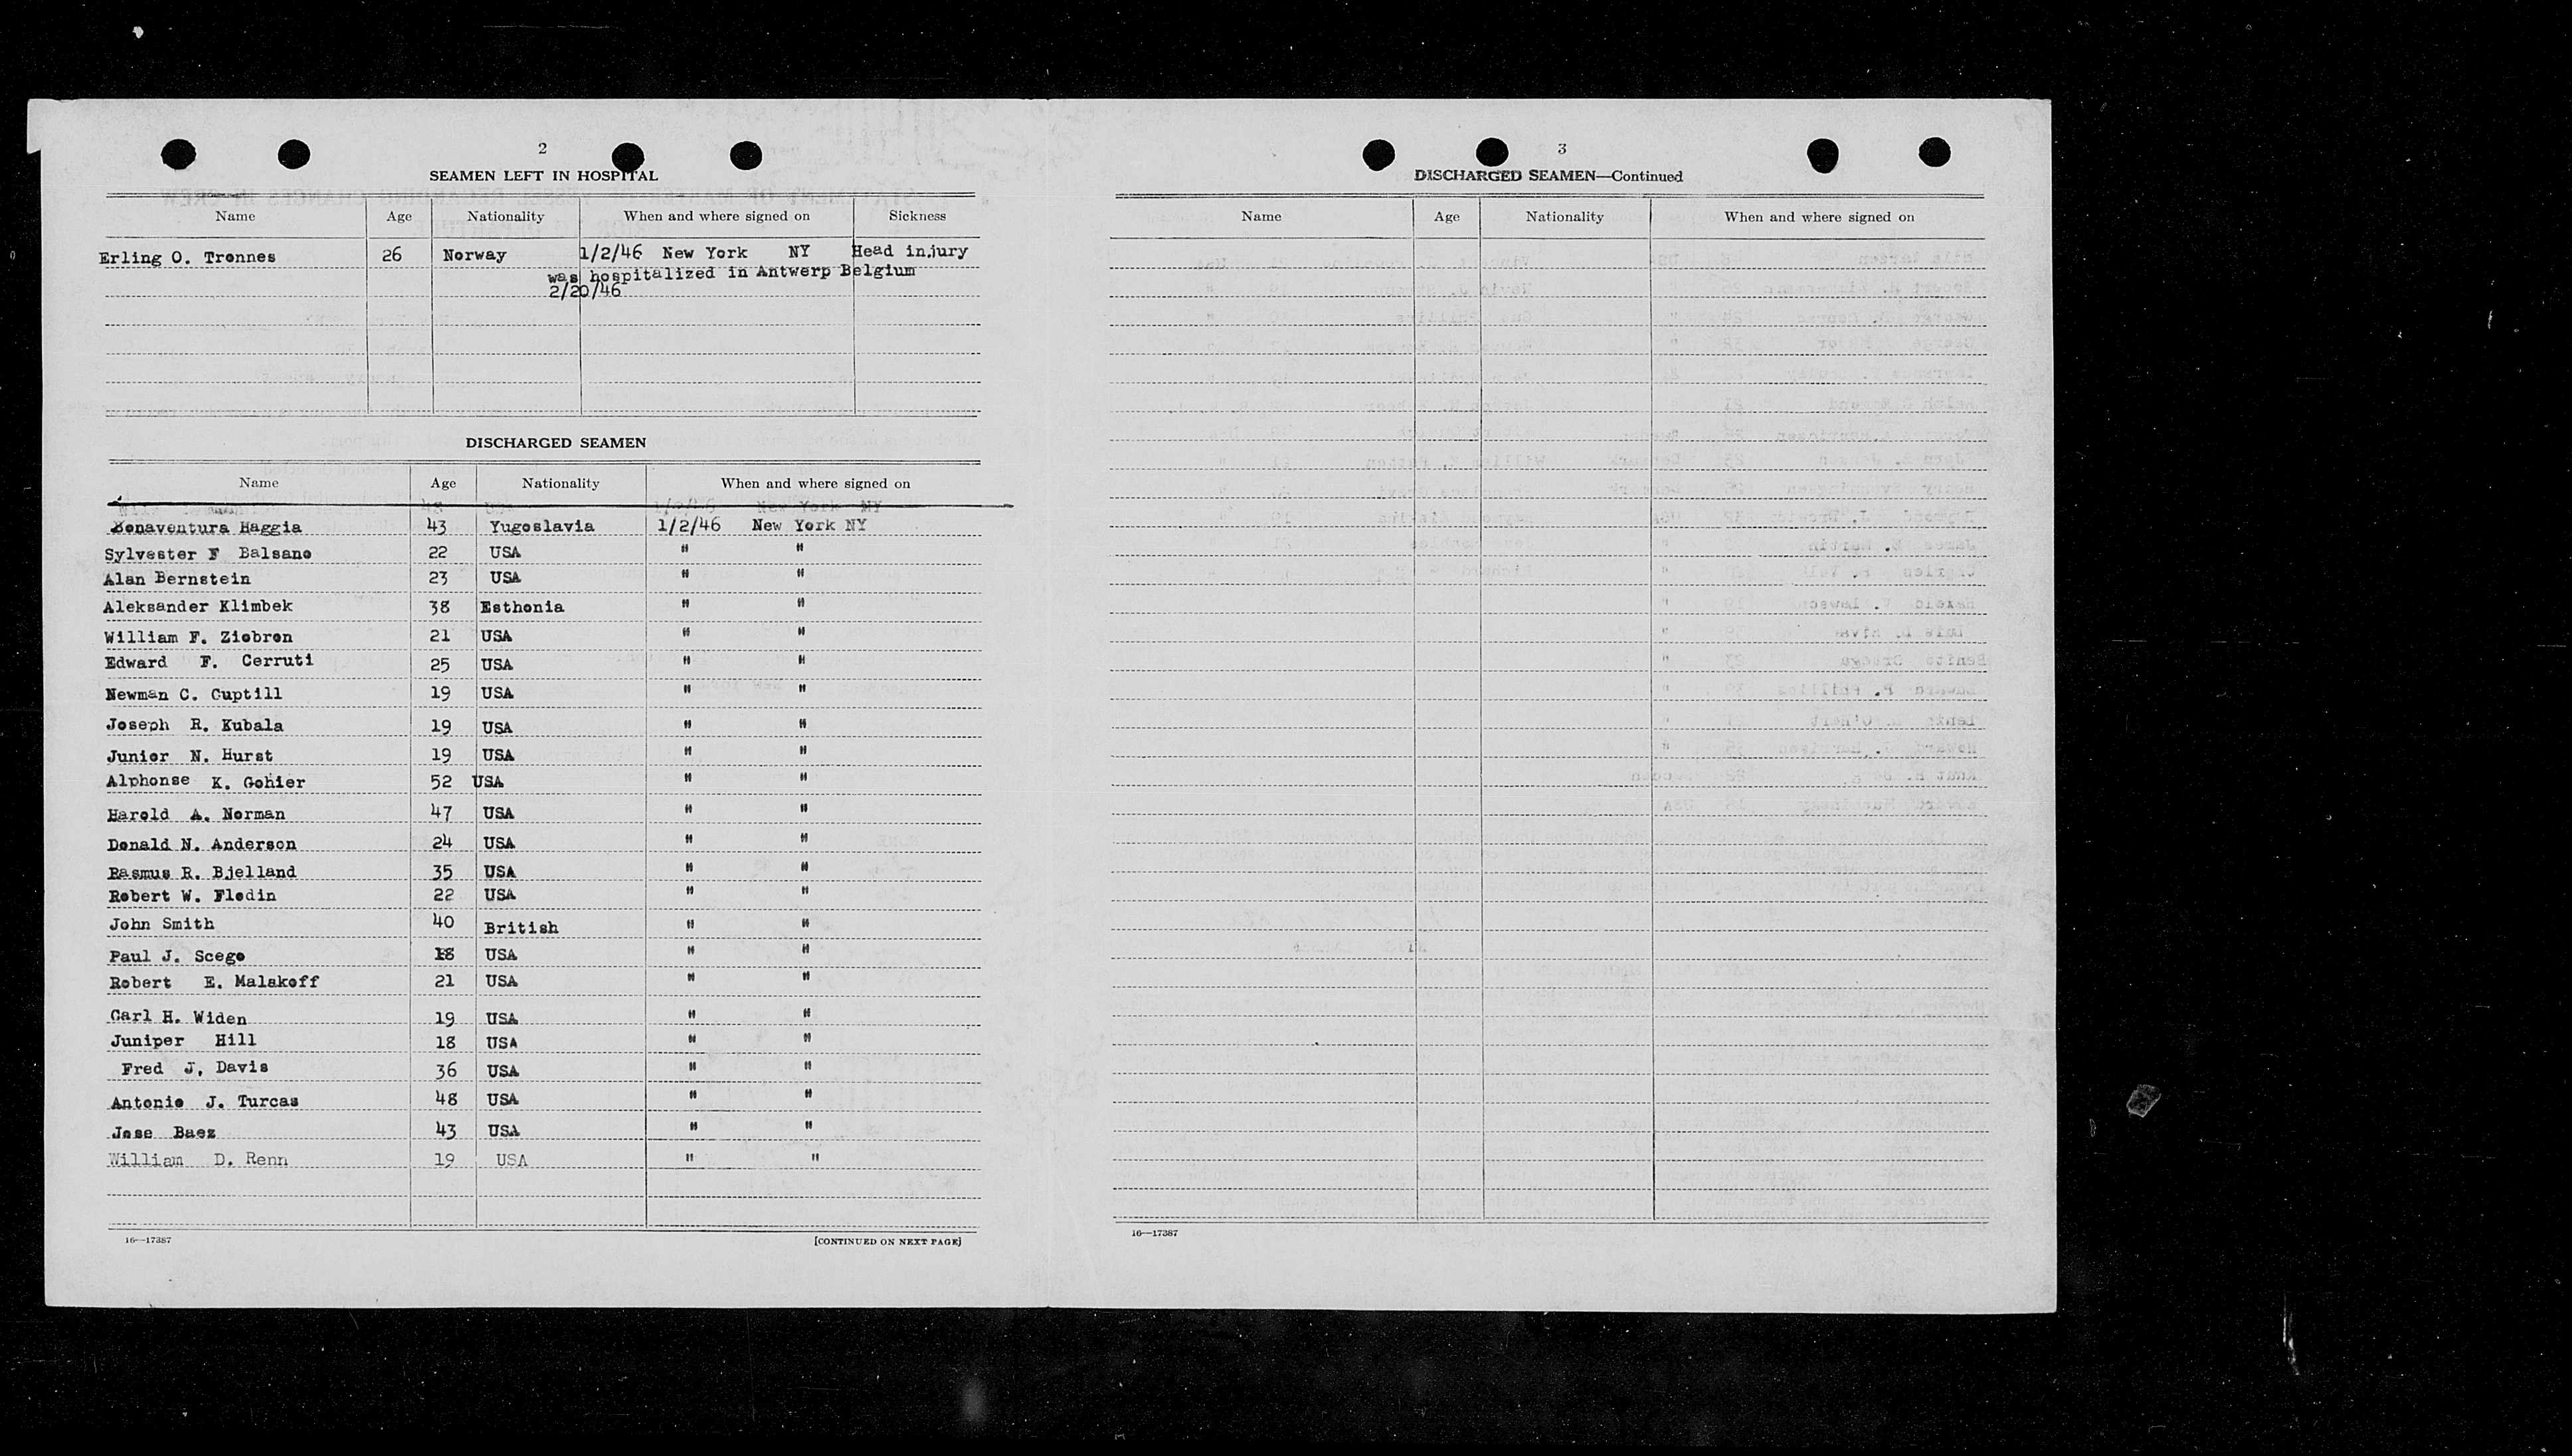 2
SEAMEN LEFT IN HOSPITAL
Name Age Nationality When and where signed on Sickness
Erling O. Tronnes 26 Norway 1/2/46 New York NY Head injury
was hospitalized in Antwerp Belgium
2/20/46
DISCHARGED SEAMEN
Name Age Nationality When and where signed on
Bonaventura Haggia 43 Yugoslavia 1/2/46 New York NY
Sylvester F Balsano 22 USA " "
Alan Bernstein 23 USA " "
Aleksander Klimbek 38 Esthonia " "
William F. Ziobron 21 USA " "
Edward F. Cerruti 25 USA " "
Newman C. Guptill 19 USA " "
Joseph R. Kubala 19 USA " "
Junior N. Hurst 19 USA " "
Alphonse K. Gohier 52 USA " "
Harold A. Norman 47 USA " "
Donald N. Anderson 24 USA " "
Rasmus R. Bjelland 35 USA " "
Robert W. Flodin 22 USA " "
John Smith 40 British " "
Paul J. Scego 18 USA " "
Robert E. Malakoff 21 USA " "
Carl H. Widen 19 USA " "
Juniper Hill 18 USA " "
Fred J, Davis 36 USA " "
Antonio J. Turcas 48 USA " "
Jose Baez 43 USA " "
William D. Renn 19 USA " "
16—17387 [CONTINUED ON NEXT PAGE]
3
DISCHARGED SEAMEN—Continued
Name Age Nationality When and where signed on
16—17387